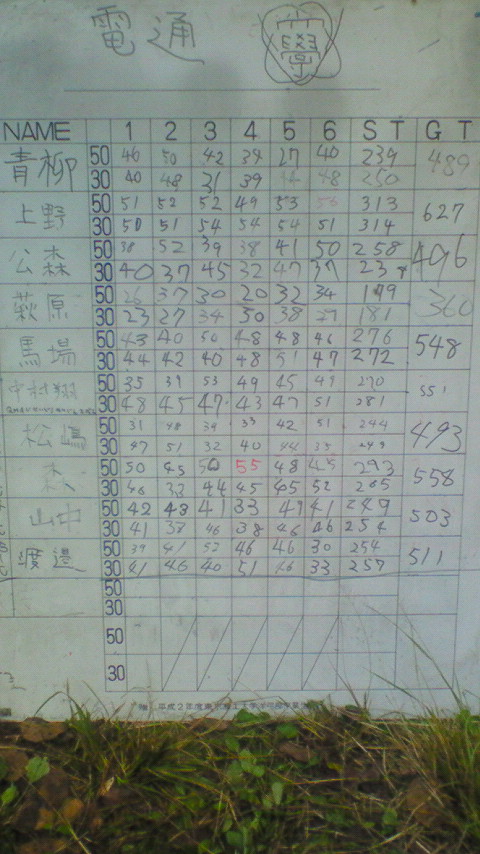 電通 學
NAME 1 2 3 4 5 6 S T G T
青柳 50 46 50 42 39 27 40 239 489
30 40 48 31 39 48 250
上野 50 51 52 52 49 53 56 313 627
30 50 51 54 54 54 51 314
公森 50 38 52 39 38 41 50 258 496
30 40 37 45 32 47 37 238
萩原 50 26 37 30 20 32 34 179 360
30 23 27 34 30 38 29 181
馬場 50 43 40 50 48 48 46 276 548
30 44 42 40 48 51 47 272
中村翔 50 35 39 53 49 45 49 270 551
30 48 45 47 43 47 51 281
松嶋 50 31 48 39 33 42 51 244 493
30 47 51 32 40 44 35 249
森 50 50 45 50 55 48 45 293 558
30 46 33 44 45 45 52 265
山中 50 42 43 41 33 49 41 249 503
30 41 37 46 38 46 46 254
渡邉 50 39 41 52 46 46 30 254 511
30 41 46 40 51 46 33 257
50
30
50
30
贈 平成2年度